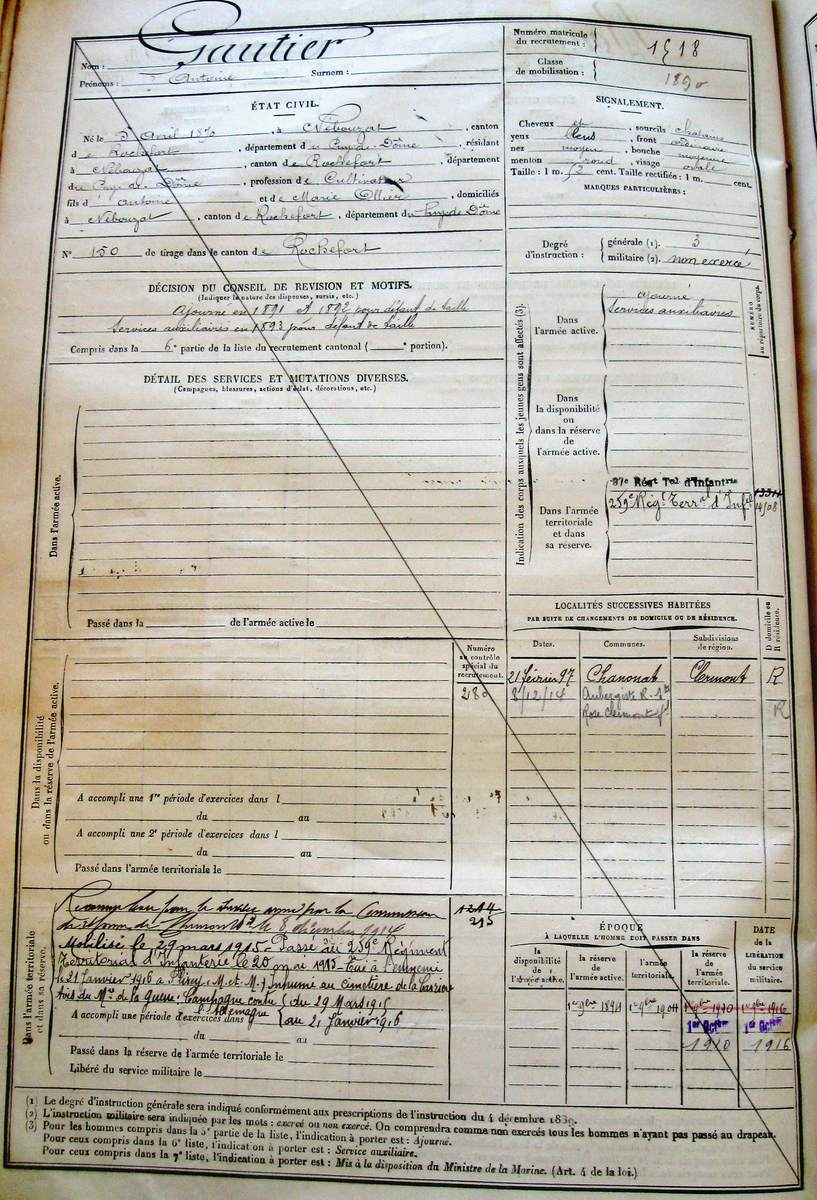 Gautier
Nom :
Prénoms : Antoine Surnom :
Numéro matricule du recrutement : 1518
Classe de mobilisation : 1890
ÉTAT CIVIL.
Né le 5 avril 1870, à Nébouzat, canton
de Rochefort, département du Puy-de-Dôme, résidant
à Nébouzat, canton de Rochefort, département
du Puy-de-Dôme, profession de Cultivateur
fils d'Antoine et de Marie Ollier, domiciliés
à Nébouzat, canton de Rochefort, département du Puy de Dôme
N° 150 de tirage dans le canton de Rochefort
SIGNALEMENT.
Cheveux et , sourcils chatains
yeux bleus , front ordinaire
nez moyen , bouche moyenne
menton rond , visage ovale
Taille : 1 m. 52 cent. Taille rectifiée : 1 m. cent.
MARQUES PARTICULIÈRES :
Degré d'instruction : générale (1). 3
militaire (2). non exercé
DÉCISION DU CONSEIL DE REVISION ET MOTIFS.
(Indiquer la nature des dispenses, sursis, etc.)
Ajourné en 1891 et 1892 pour défaut de taille
Services auxiliaires en 1893 pour défaut de taille
Compris dans la 6e partie de la liste du recrutement cantonal ( e portion).
Indication des corps auxquels les jeunes gens sont affectés (3).
NUMÉRO au répertoire du corps.
Dans l'armée active.
ajourné
Services auxiliaires
Dans la disponibilité ou dans la réserve de l'armée active.
Dans l'armée territoriale et dans sa réserve.
37e Régt Tal d'Infantrie
259e Régt Terral d'Infie
14/08
DÉTAIL DES SERVICES ET MUTATIONS DIVERSES.
(Campagnes, blessures, actions d'éclat, décorations, etc.)
Dans l'armée active.
Passé dans la de l'armée active le
LOCALITÉS SUCCESSIVES HABITÉES
PAR SUITE DE CHANGEMENTS DE DOMICILE OU DE RÉSIDENCE.
Dates. Communes. Subdivisions de région. D domicile ou R résidence.
21 février 97 Chanonat Clermont R
8/12/14 Aubergiste R. Ste
Rose Clermont fd R
Numéro au contrôle spécial du recrutement.
280
Dans la disponibilité ou dans la réserve de l'armée active.
A accompli une 1re période d'exercices dans l
du au
A accompli une 2e période d'exercices dans l
du au
Passé dans l'armée territoriale le
Dans l'armée territoriale et dans sa réserve.
Reconnu bon pour le service armé par la Commission
de réforme de Clermont le 8 décembre 1914
Mobilisé le 29 mars 1915 Passé au 259e Régiment
Territorial d'Infanterie le 20 mai 1915 Tué à l'ennemi
le 21 Janvier 1916 à (M. et M.) inhumé au cimetière de la
bois du Min de la Gueue. Campagne contre l'Allemagne du 29 Mars 1915
au 21 Janvier 1916
1244
215
A accompli une période d'exercices dans
du au
Passé dans la réserve de l'armée territoriale le
Libéré du service militaire le
ÉPOQUE
À LAQUELLE L'HOMME DOIT PASSER DANS
la disponibilité de l'armée active. la réserve de l'armée active. l'armée territoriale. la réserve de l'armée territoriale.
DATE de la LIBÉRATION du service militaire.
1er 9bre 1894 1er 9bre 1904 1er 9bre 1910 1er 9bre 1916
1er Octbre 1910 1er Octbre 1916
(1) Le degré d'instruction générale sera indiqué conformément aux prescriptions de l'instruction du 4 décembre 1889.
(2) L'instruction militaire sera indiquée par les mots : exercé ou non exercé. On comprendra comme non exercés tous les hommes n'ayant pas passé au drapeau.
(3) Pour les hommes compris dans la 5e partie de la liste, l'indication à porter est : Ajourné.
Pour ceux compris dans la 6e liste, l'indication à porter est : Service auxiliaire.
Pour ceux compris dans la 7e liste, l'indication à porter est : Mis à la disposition du Ministre de la Marine. (Art. 4 de la loi.)